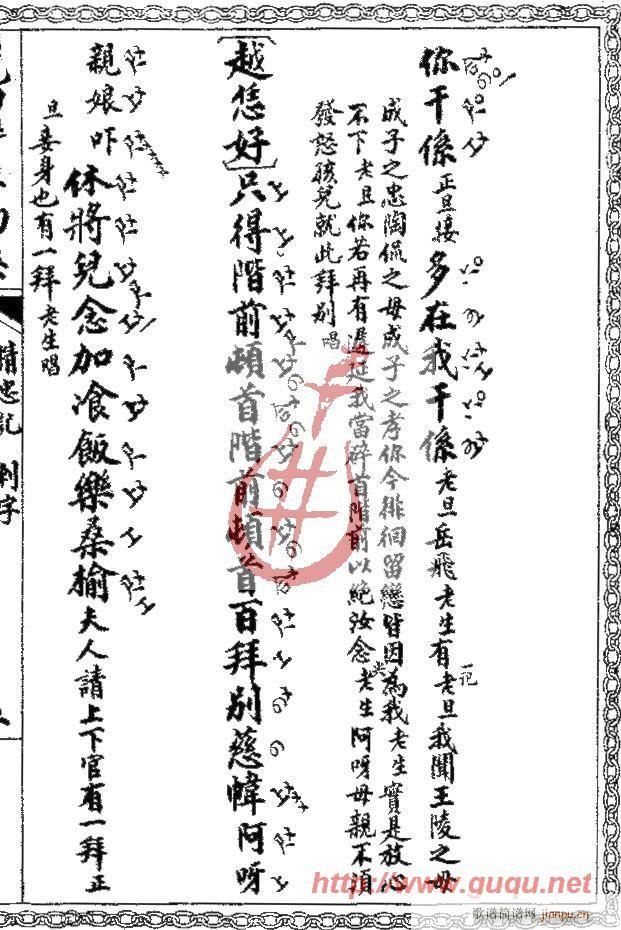 你干係正旦接多在我干係老旦岳飛老生有老旦我聞王陵之母
成子之忠陶侃之母成子之孝你今徘徊留戀皆因為我老生實是放心
不下老旦你若再有遲延我當碎首階前以絕汝念老生阿呀母親不須
發怒孩兒就此拜別唱
越恁好只得階前頓首階前頓首百拜別慈幃阿呀
親娘吓休將兒念加飡飯樂桑榆夫人請上下官有一拜正
旦妾身也有一拜老生唱
精忠記 刺字
http://www.guqu.net
歌谱简谱网 jianpu.cn